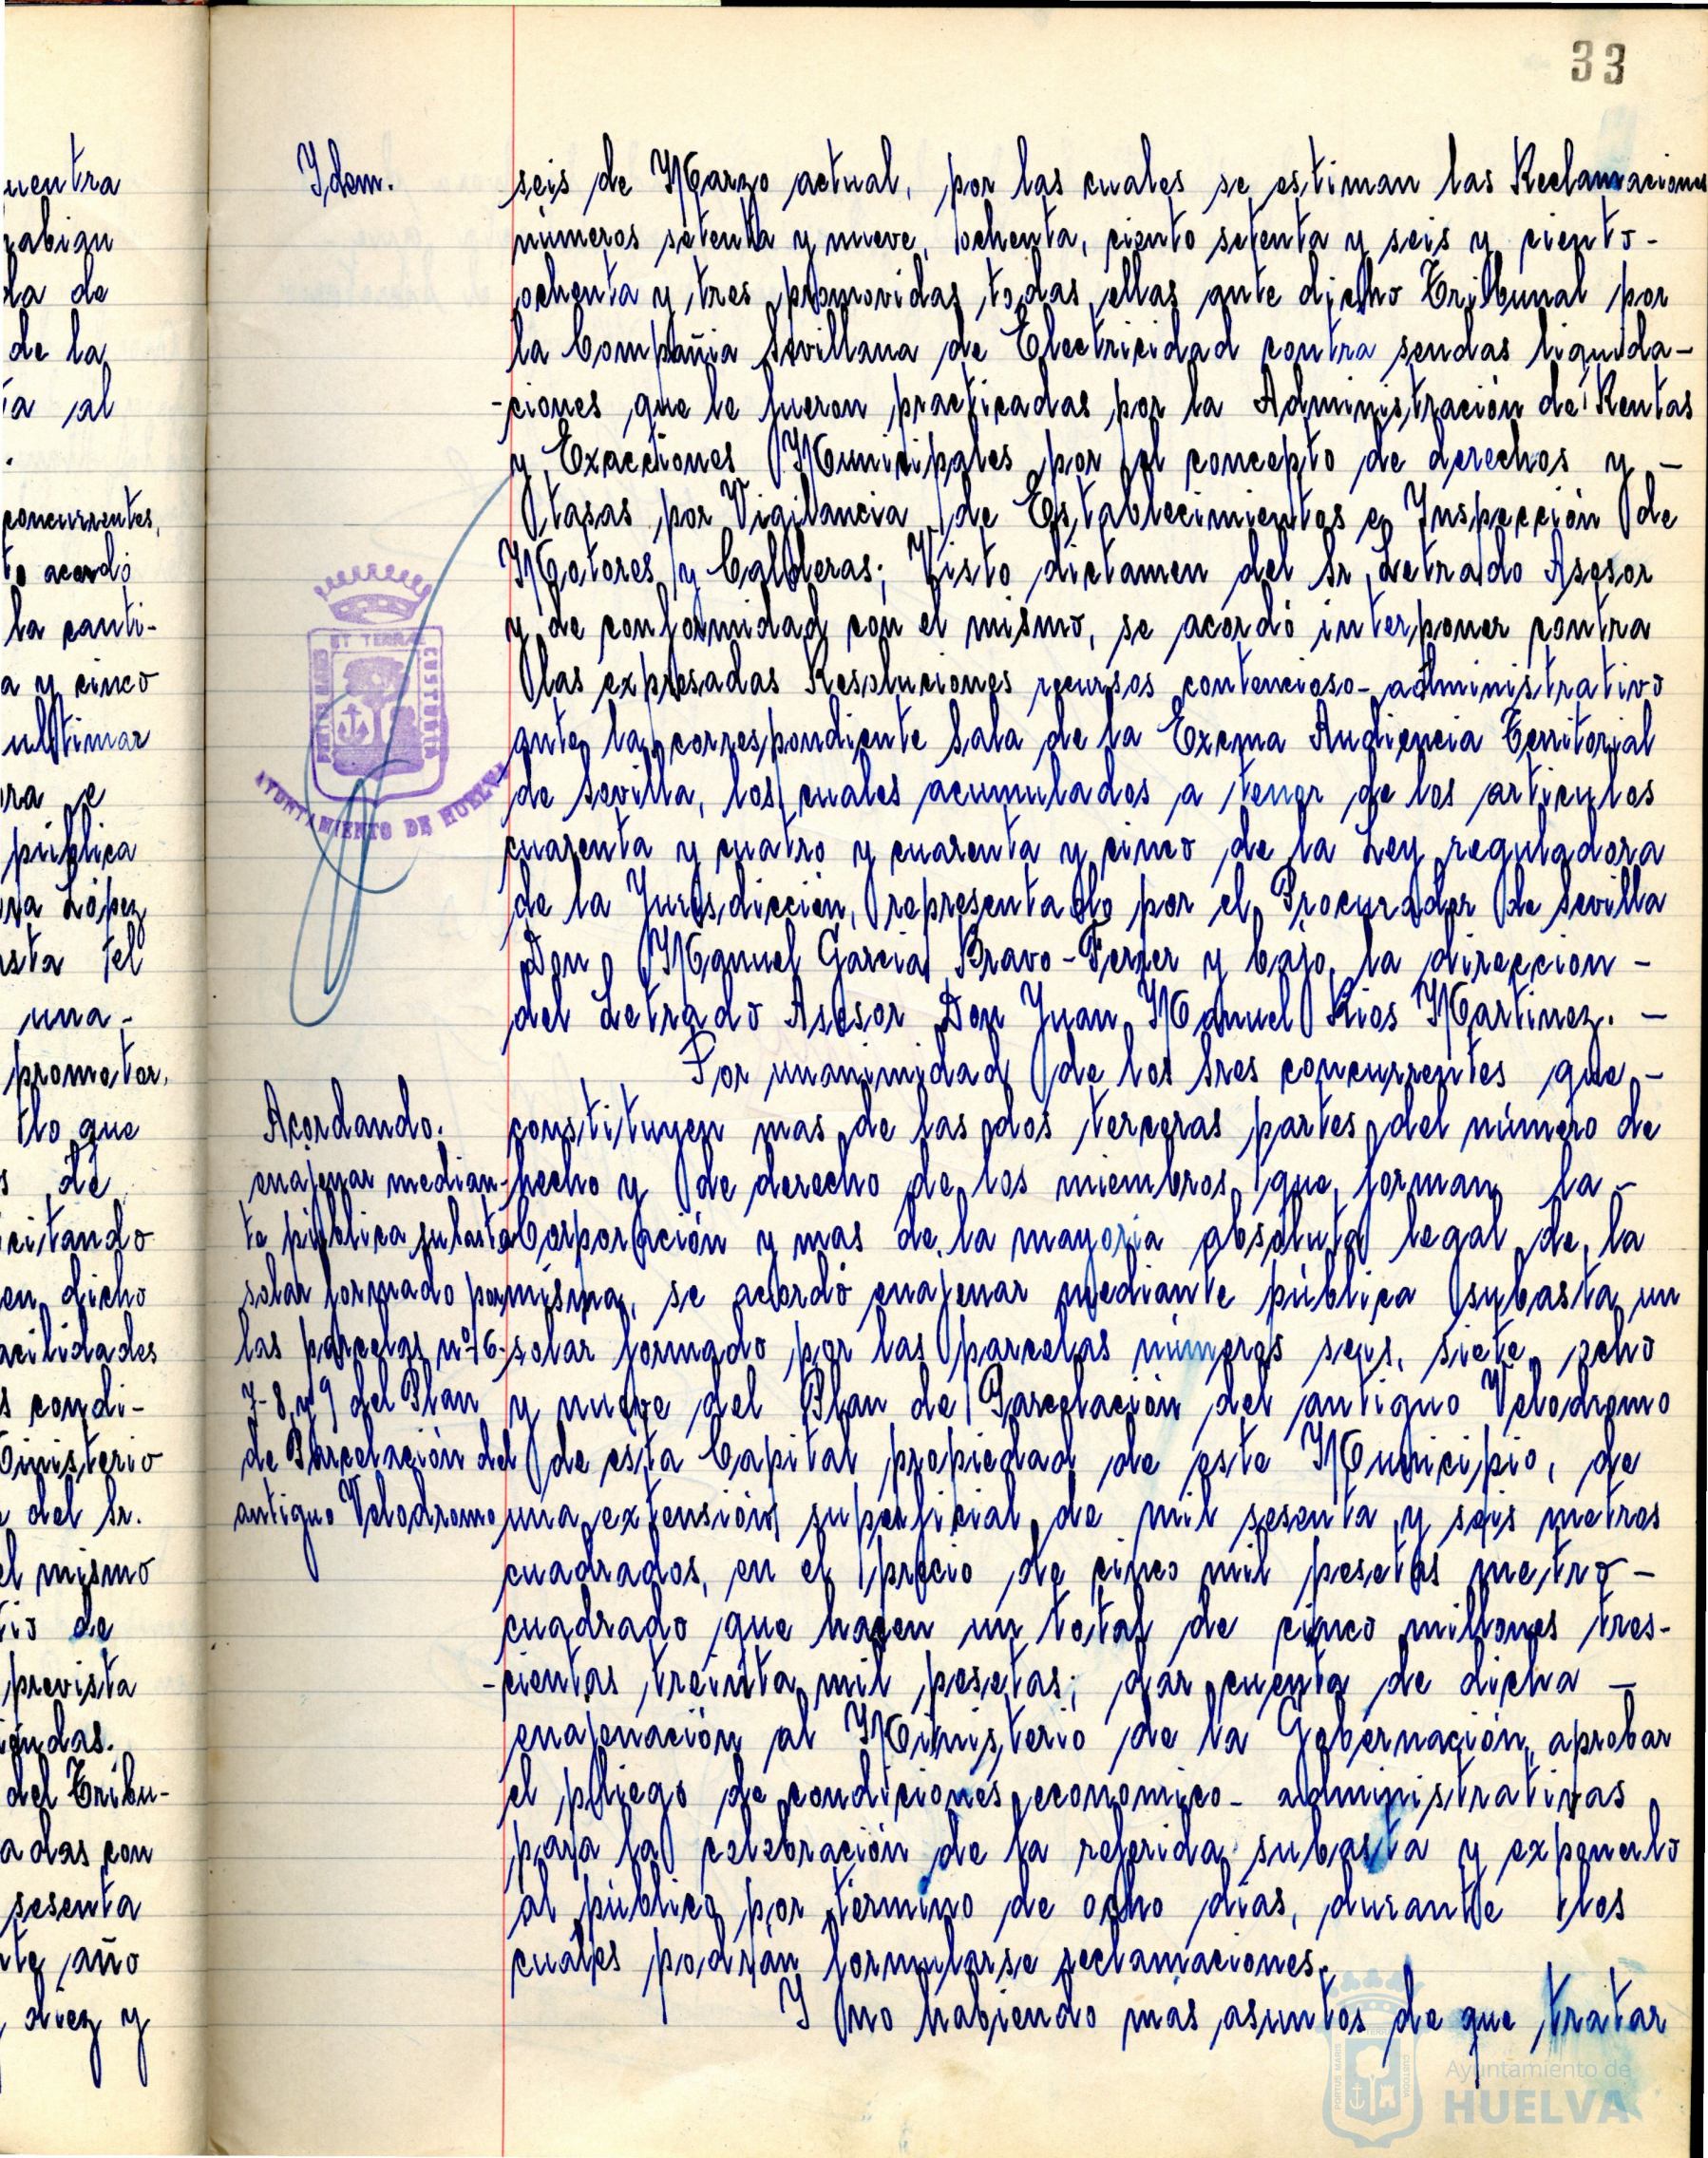 33
uentra
rabian
la de
de la
ia al
.
concurrentes,
to acordó
la canti-
a y cinco
ultimar
ra e
pública
ra López
sta tel
una-
prometer,
tlo que
s de
citando
en dicho
acilidades
s condi-
Ministerio
del Sr.
el mismo
tio de
prevista
iendas.
del Tribu-
adas con
sesenta
nte año
diez y
Idem.
AYUNTAMIENTO DE HUELVA
PORTUS MARIS ET TERRAE CUSTODIA
Acordando.
enajenar median-
te pública subasta
solar formado por
las parcelas nº 6-
7-8 y 9 del Plan
de Parcelación del
antiguo Velodromo
seis de Marzo actual, por las cuales se estiman las Reclamaciones
números setenta y nueve, ochenta, ciento setenta y seis y ciento-
ochenta y tres promovidas todas ellas ante dicho Tribunal por
la Compañia Sevillana de Electricidad contra sendas liquida-
-ciones que le fueron practicadas por la Administración de Rentas
y Exacciones Municipales por el concepto de derechos y -
tasas por Vigilancia de Establecimientos e Inspección de
Motores y Calderas; Visto dictamen del Sr. Letrado Asesor
y de conformidad con el mismo, se acordó interponer contra
las expresadas Resoluciones recursos contencioso-administrativo
ante la correspondiente Sala de la Excma Audiencia Territorial
de Sevilla, los cuales acumulados a tenor de los articulos
cuarenta y cuatro y cuarenta y cinco de la Ley reguladora
de la Jurisdicción, representado por el Procurador de Sevilla
Don Manuel Garcia Bravo-Ferrer y bajo la direccion -
del Letrado Asesor Don Juan Manuel Rios Martinez. -
Por unanimidad de los Sres concurrentes que -
constituyen mas de las dos terceras partes del número de
hecho y de derecho de los miembros que forman la -
Corporación y mas de la mayoria absoluta legal de la
misma, se acordó enajenar mediante pública subasta un
solar formado por las parcelas números seis, siete, ocho
y nueve del Plan de Parcelación del antiguo Velodromo
de esta Capital propiedad de este Municipio, de
una extensión superficial de mil sesenta y seis metros
cuadrados, en el precio de cinco mil pesetas metro -
cuadrado que hacen un total de cinco millones tres-
-cientas treinta mil pesetas; dar cuenta de dicha -
enajenación al Ministerio de la Gobernación, aprobar
el pliego de condiciones economico-administrativas
para la celebración de la referida subasta y exponerlo
al público por término de ocho dias, durante los
cuales podran formularse reclamaciones.
Y no habiendo mas asuntos de que tratar
Ayuntamiento de
HUELVA